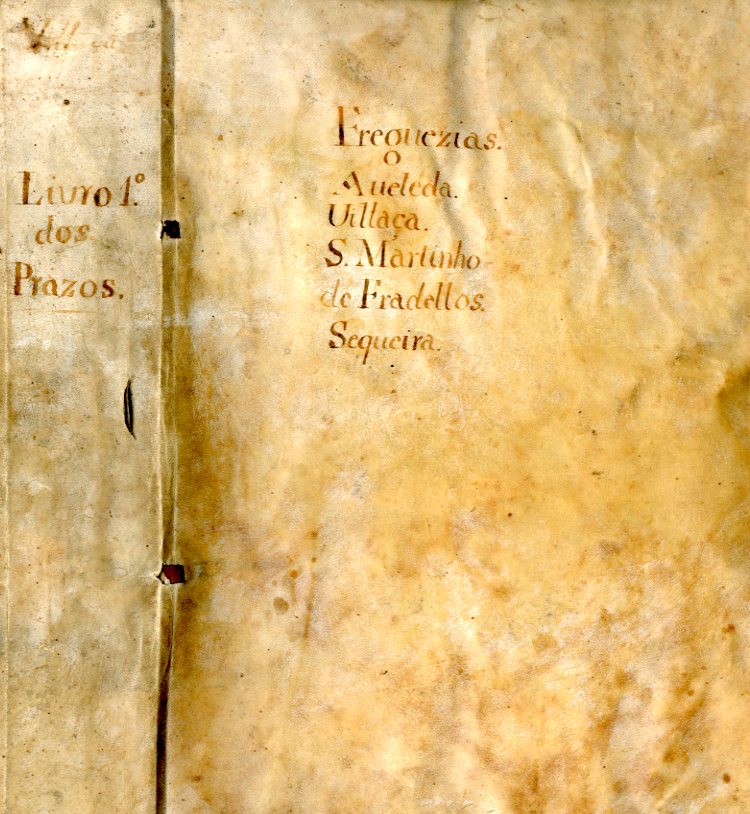 Livro 1º
dos
Prazos.
Freguezias.
o
Aueleda.
Uillaça.
S. Martinho
de Fradellos.
Sequeira.